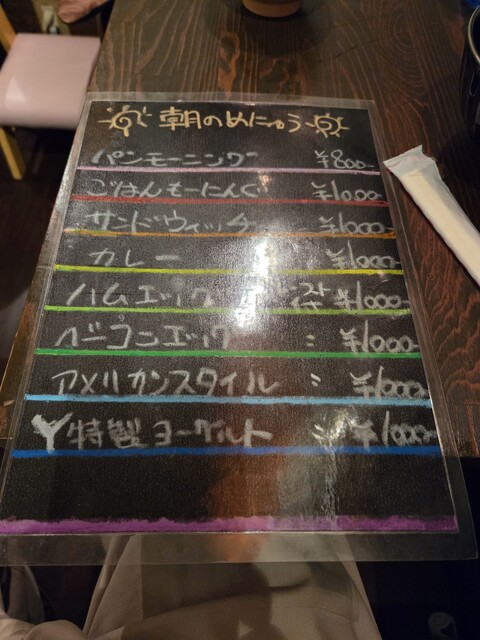 朝のめにゅう
パンモーニング ¥800-
ごはんもーにんぐ ¥1000-
サンドウィッチ ¥1000-
カレー ¥1000-
ハムエッグ ¥1000-
ベーコンエッグ 〃 ¥1000-
アメリカンスタイル 〃 ¥1000-
Y特製ヨーグルト 〃 ¥1000-